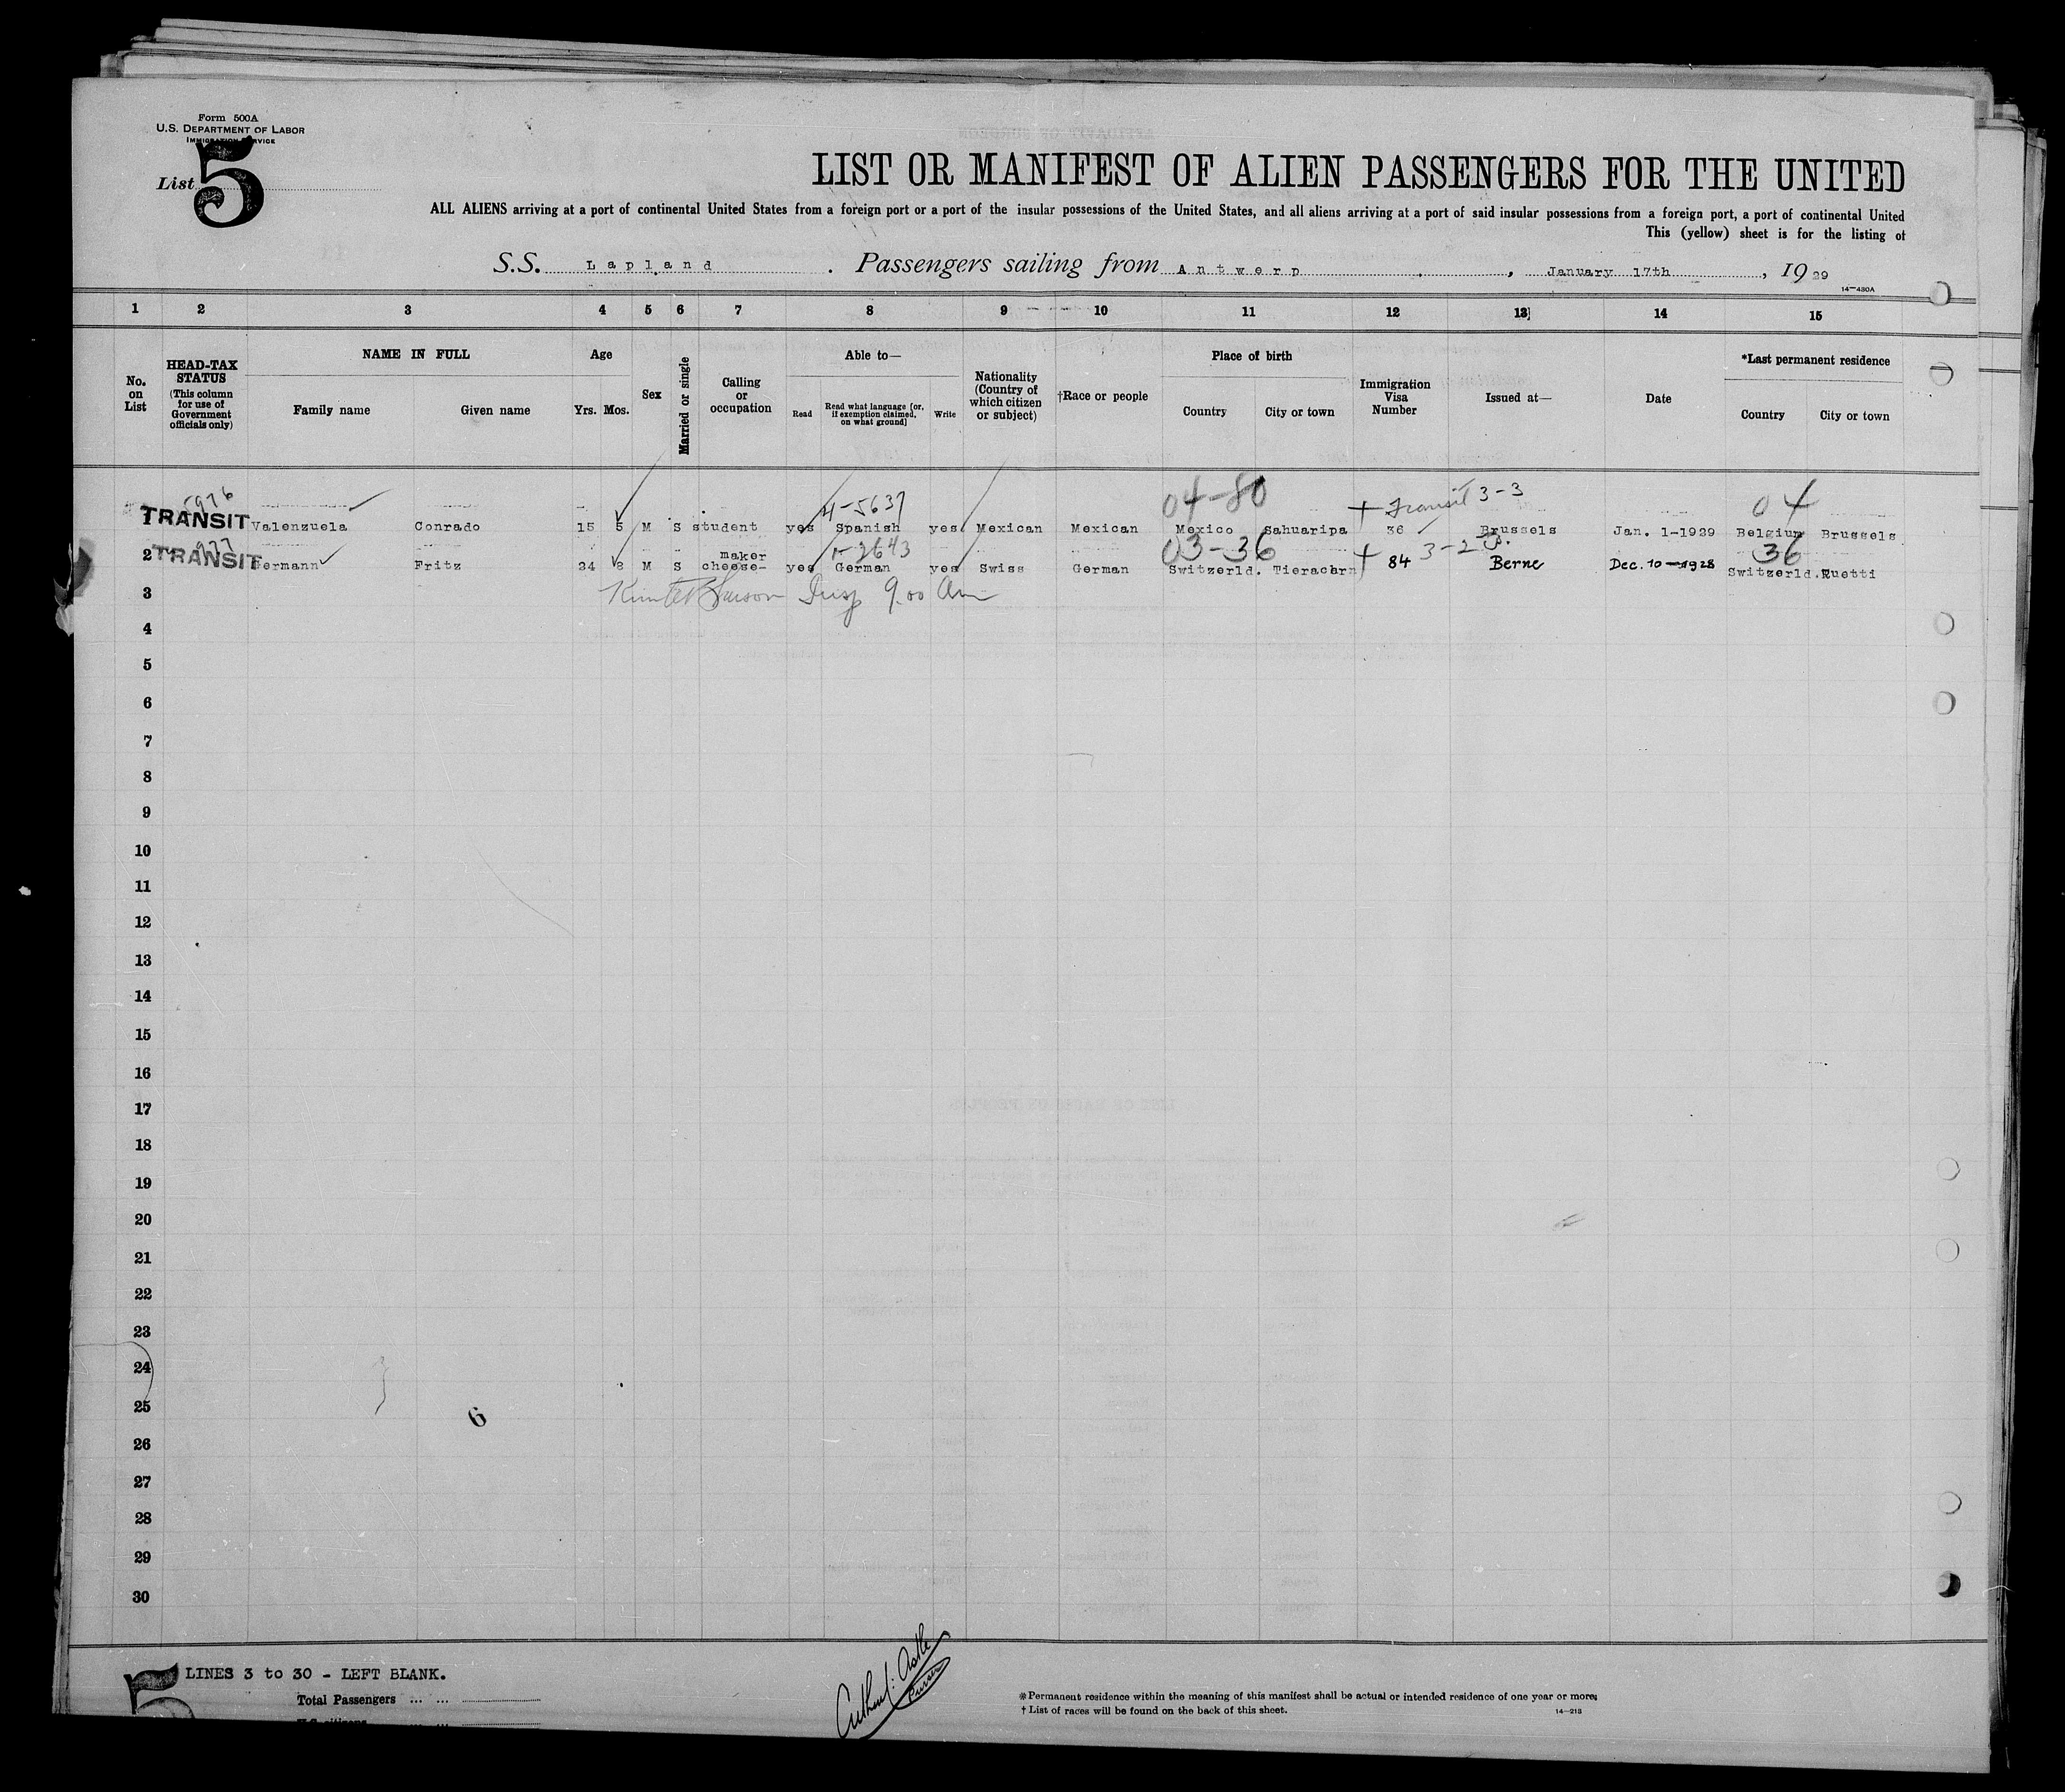 Form 500A
U.S. DEPARTMENT OF LABOR
IMMIGRATION SERVICE
List 5
LIST OR MANIFEST OF ALIEN PASSENGERS FOR THE UNITED
ALL ALIENS arriving at a port of continental United States from a foreign port or a port of the insular possessions of the United States, and all aliens arriving at a port of said insular possessions from a foreign port, a port of continental United
This (yellow) sheet is for the listing of
S.S. Lapland. Passengers sailing from Antwerp, January 17th, 1929
14—430A
1 2 3 4 5 6 7 8 9 10 11 12 13 14 15
No. on List
HEAD-TAX STATUS (This column for use of Government officials only)
NAME IN FULL
Family name Given name
Age
Yrs. Mos.
Sex
Married or single
Calling or occupation
Able to—
Read Read what language [or, if exemption claimed, on what ground] Write
Nationality (Country of which citizen or subject)
†Race or people
Place of birth
Country City or town
Immigration Visa Number
Issued at—
Date
*Last permanent residence
Country City or town
5976 4-5637 04-80 Transit 3-3 04
1 TRANSIT Valenzuela Conrado 15 5 M S student yes Spanish yes Mexican Mexican Mexico Sahuaripa 36 Brussels Jan. 1-1929 Belgium Brussels
977 maker 2643 03-36 3-2 36
2 TRANSIT Fermann Fritz 24 8 M S cheese- yes German yes Swiss German Switzerld. 84 Berne Dec. 10-1928 Switzerld. Ruetti
3 9.00 Am
4
5
6
7
8
9
10
11
12
13
14
15
16
17
18
19
20
21
22
23
24
25
6
26
27
28
29
30
5 LINES 3 to 30 - LEFT BLANK.
Total Passengers ... ...
Purser
*Permanent residence within the meaning of this manifest shall be actual or intended residence of one year or more.
† List of races will be found on the back of this sheet.
14—213